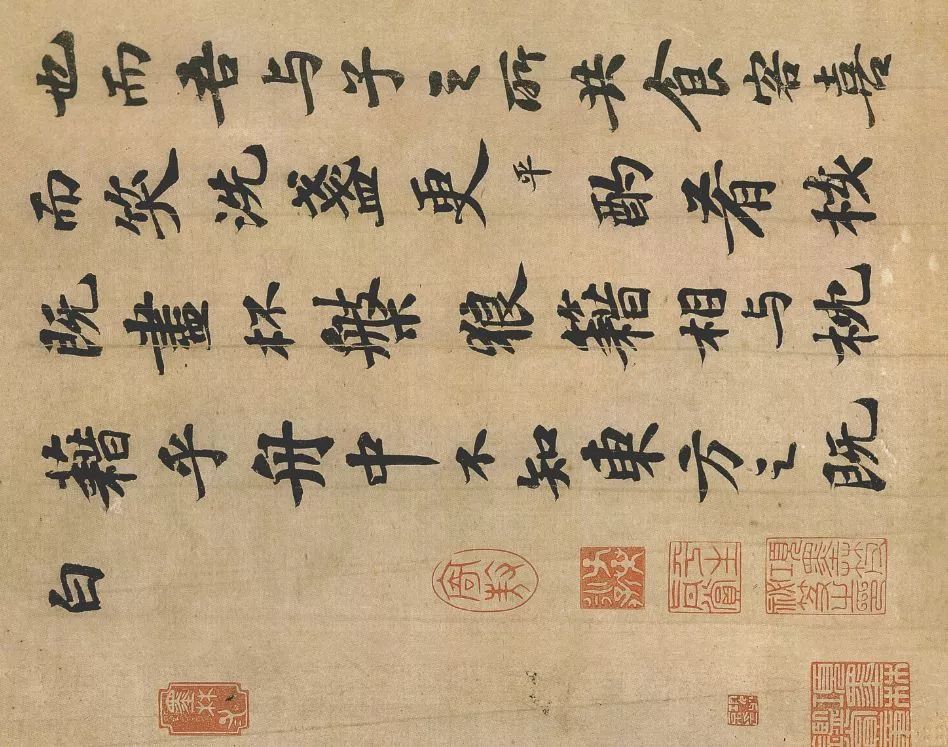 也而吾与子之所共食客喜
而笑洗盞更平酌肴核
既盡杯盤狼籍相与枕
藉乎舟中不知東方之既
白